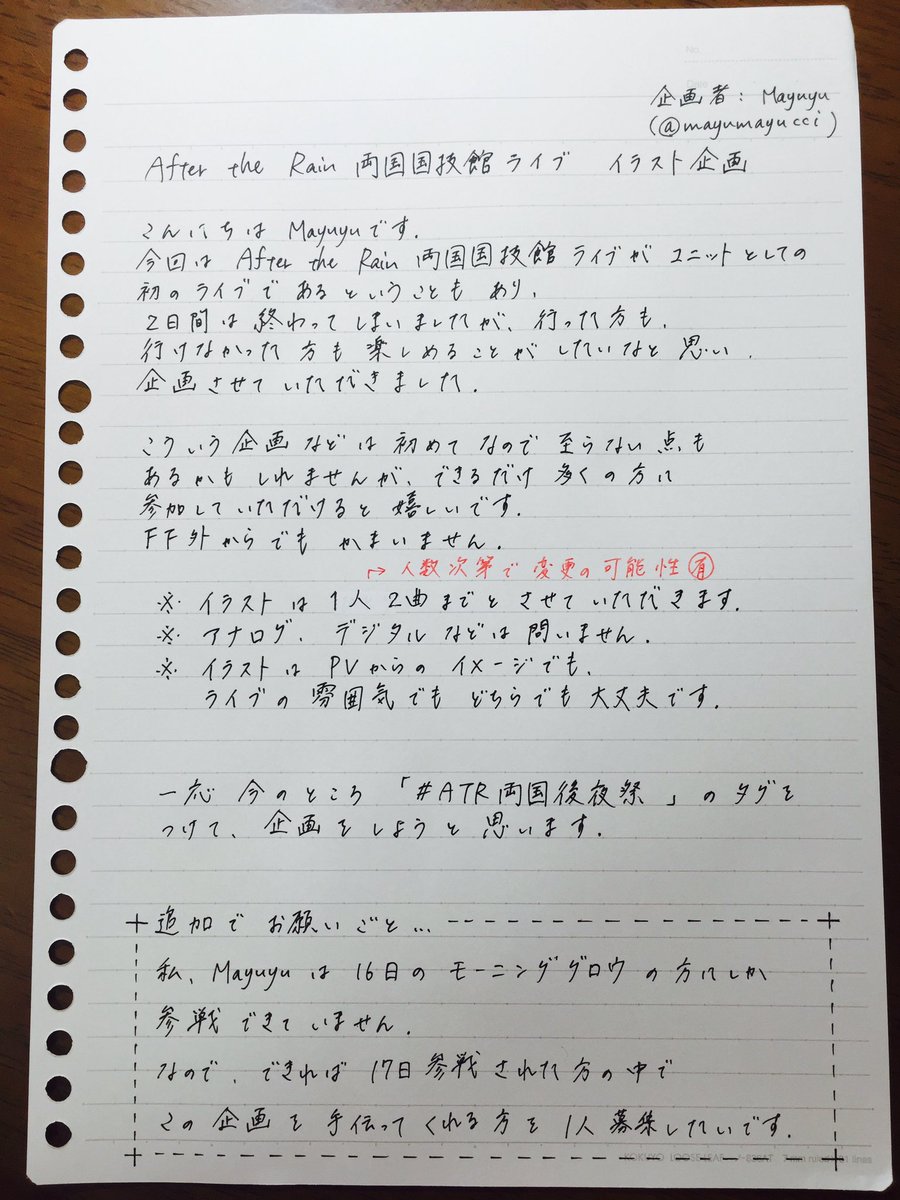 No.
Date
企画者: Mayuyu
(@mayumayucci)
After the Rain 両国国技館ライブ イラスト企画
こんにちは Mayuyuです.
今回は After the Rain 両国国技館ライブが ユニットとしての
初のライブであるということもあり、
2日間は終わってしまいましたが、行った方も、
行けなかった方も楽しめることがしたいなと思い、
企画させていただきました.
こういう企画などは初めてなので至らない点も
あるかもしれませんが、できるだけ多くの方に
参加していただけると嬉しいです.
FF外からでもかまいません.
↪人数次第で変更の可能性㊒
※ イラストは1人2曲までとさせていただきます.
※ アナログ、デジタルなどは問いません.
※ イラストはPVからのイメージでも、
ライブの雰囲気でもどちらでも大丈夫です.
一応今のところ「#ATR両国後夜祭」のタグを
つけて、企画をしようと思います.
追加でお願いごと...
私、Mayuyuは16日のモーニンググロウの方にしか
参戦できていません.
なので、できれば17日参戦された方の中で
この企画を手伝ってくれる方を1人募集したいです.
KOKUYO LOOSE-LEAF